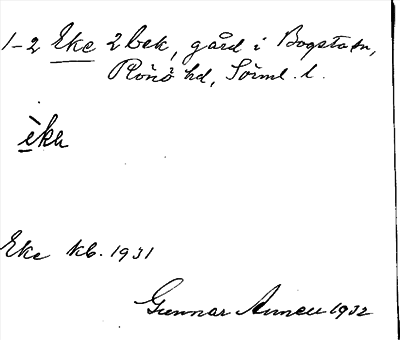 1-2 Eke 2 bek, gård i Bogsta sn,
Rönö hd, Sörml. l.
èka
Eke kb. 1931
Gunnar 1932